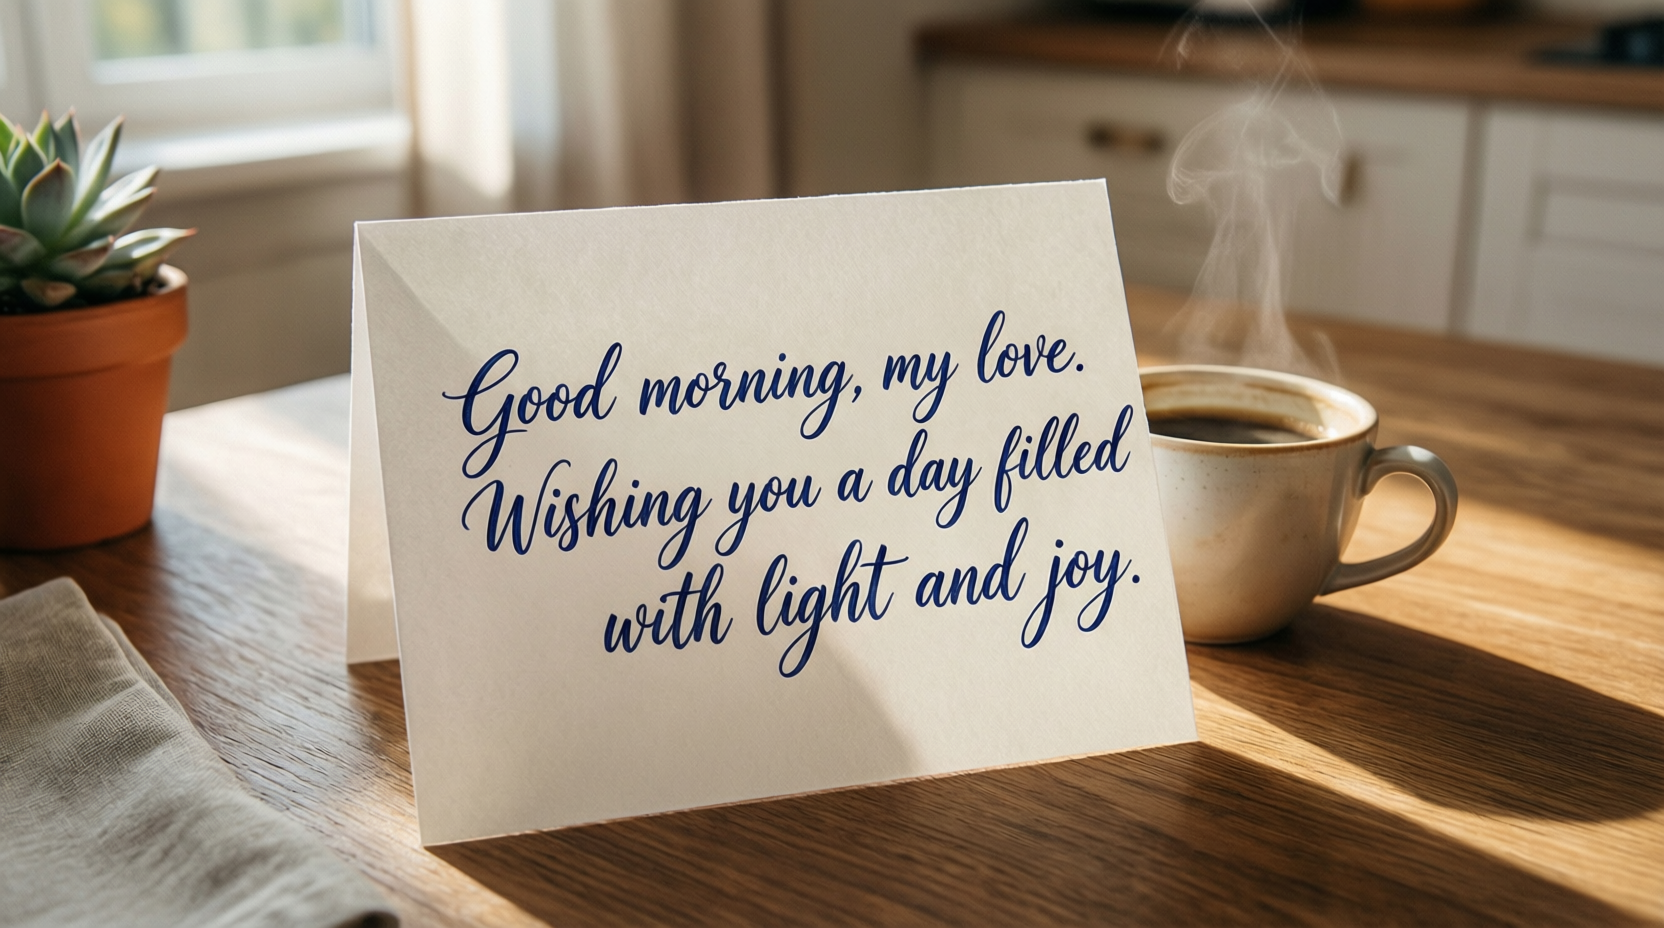 Good morning, my love.
Wishing you a day filled
with light and joy.